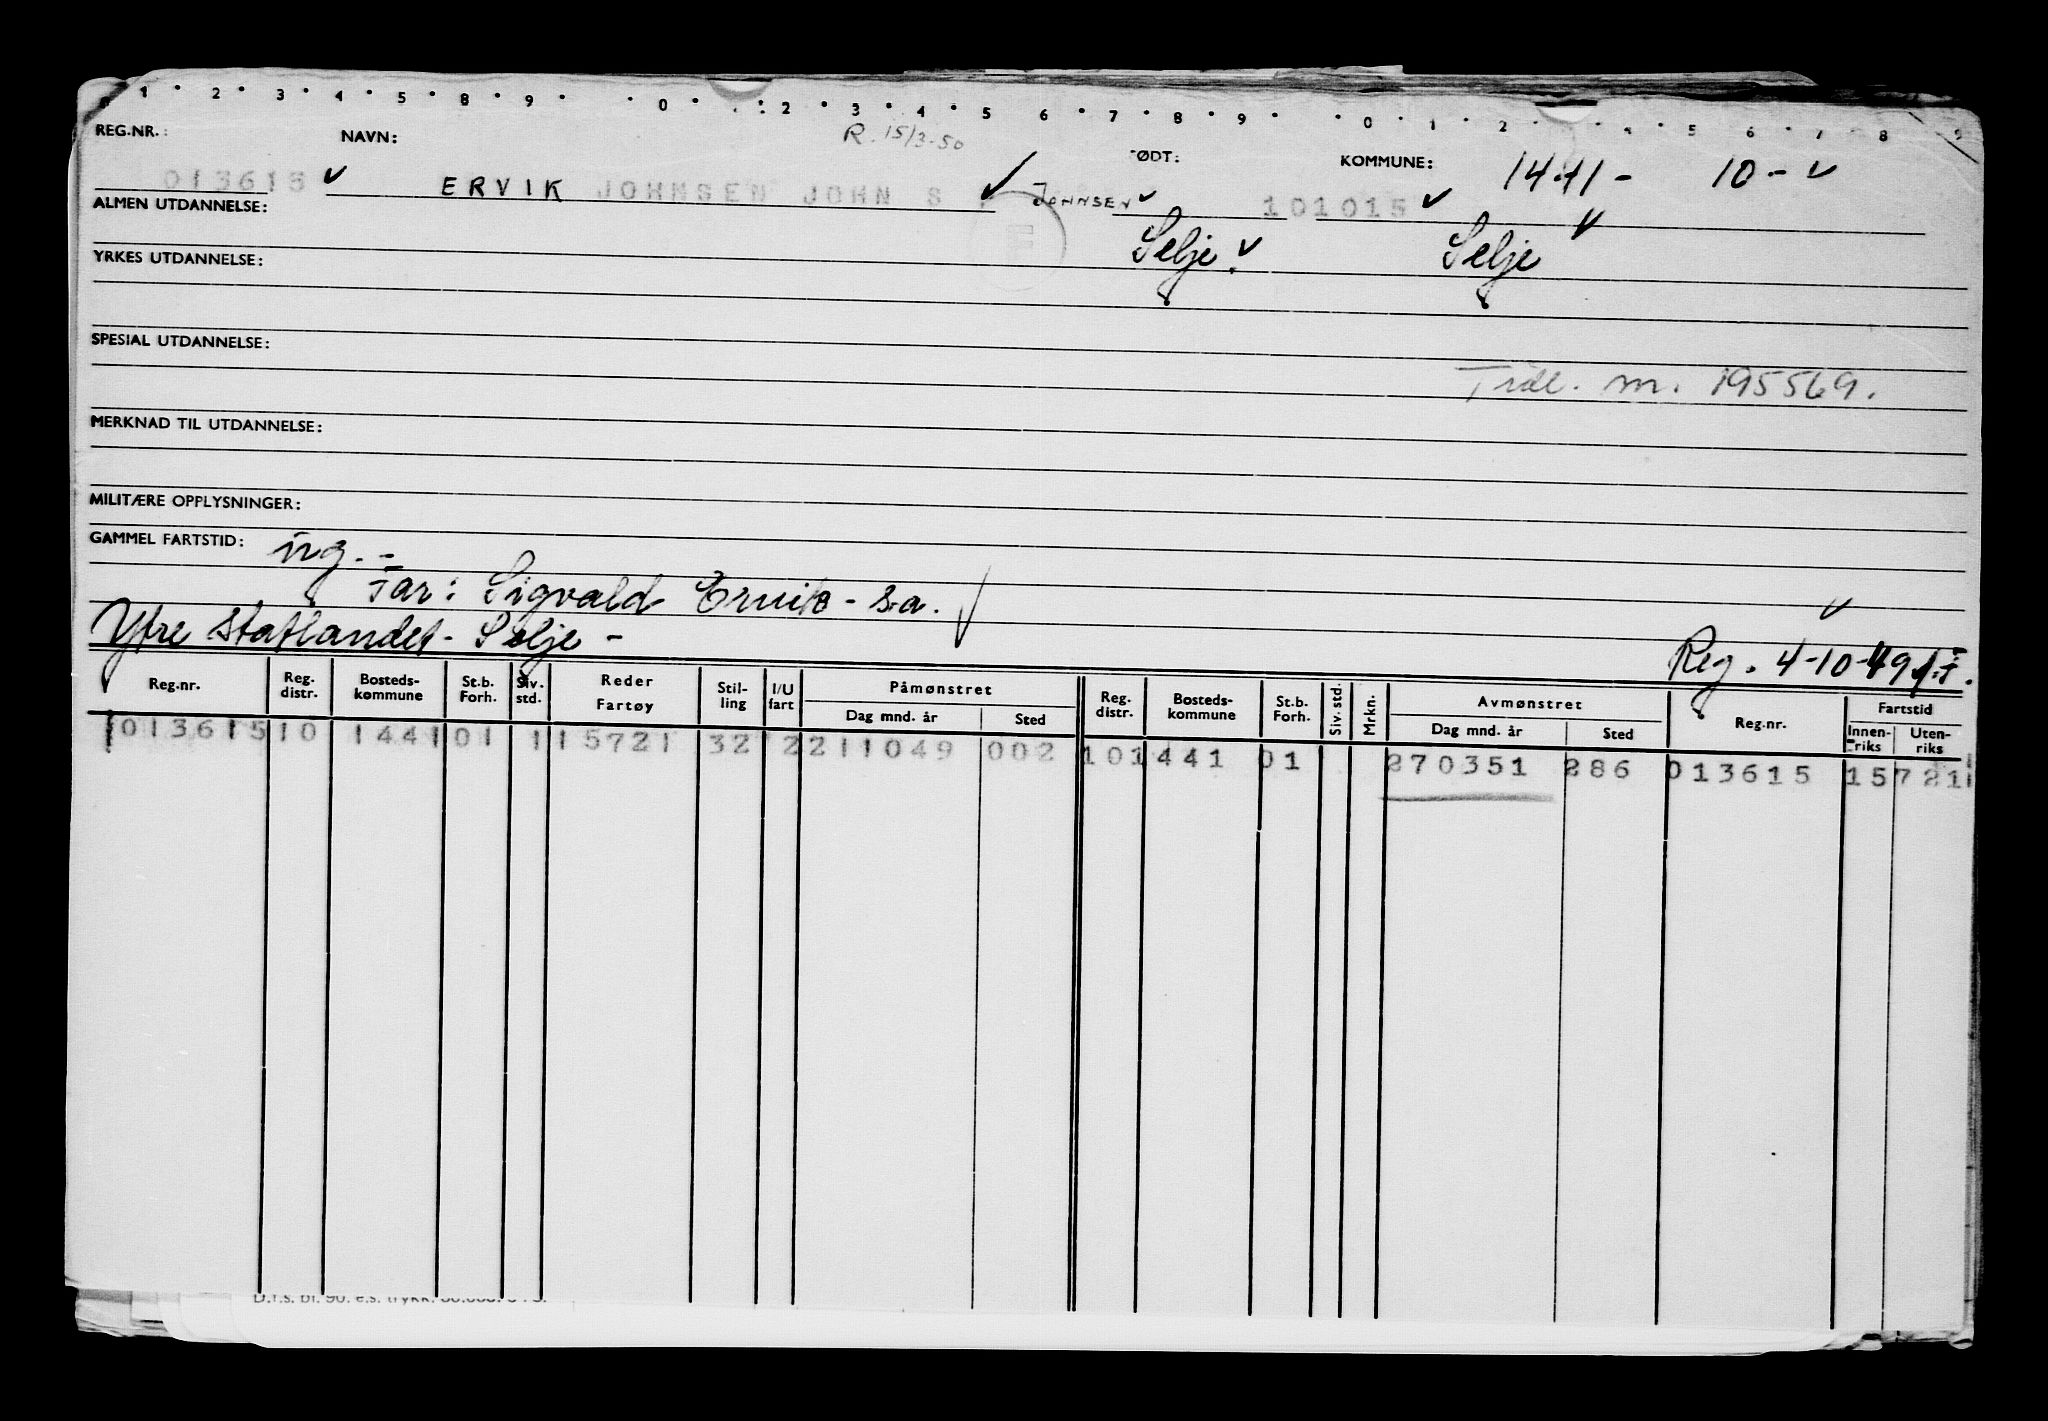 0 1 2 3 4 5 8 9 0 2 3 4 5 6 7 8 9 0 1 2 4 5 6 7 8 9
REG.NR.: NAVN: R. 15/3-50 FØDT: KOMMUNE: 1441- 10-
013615 ERVIK JOHNSEN JOHN S. JOHNSEN 101015
ALMEN UTDANNELSE: Selje. Selje
YRKES UTDANNELSE:
SPESIAL UTDANNELSE:
Tidl. nr. 195569.
MERKNAD TIL UTDANNELSE:
MILITÆRE OPPLYSNINGER:
GAMMEL FARTSTID: ug. -
Far: Sigvald Ervik - s.a.
Ytre Statlandet - Selje - Reg. 4-10-49
Reg.nr. Reg. distr. Bosteds-kommune St.b. Forh. Siv. std. Reder Fartøy Stil-ling I/U fart Påmønstret Dag mnd. år Sted Reg. distr. Bosteds-kommune St.b. Forh. Siv. std. Mrkn. Avmønstret Dag mnd. år Sted Reg.nr. Fartstid Innen-riks Uten-riks
013615 10 1441 01 1 15721 32 2 211049 002 10 1441 01 270351 286 013615 15721
D.f.s. bl. 90. e.s. trykk.